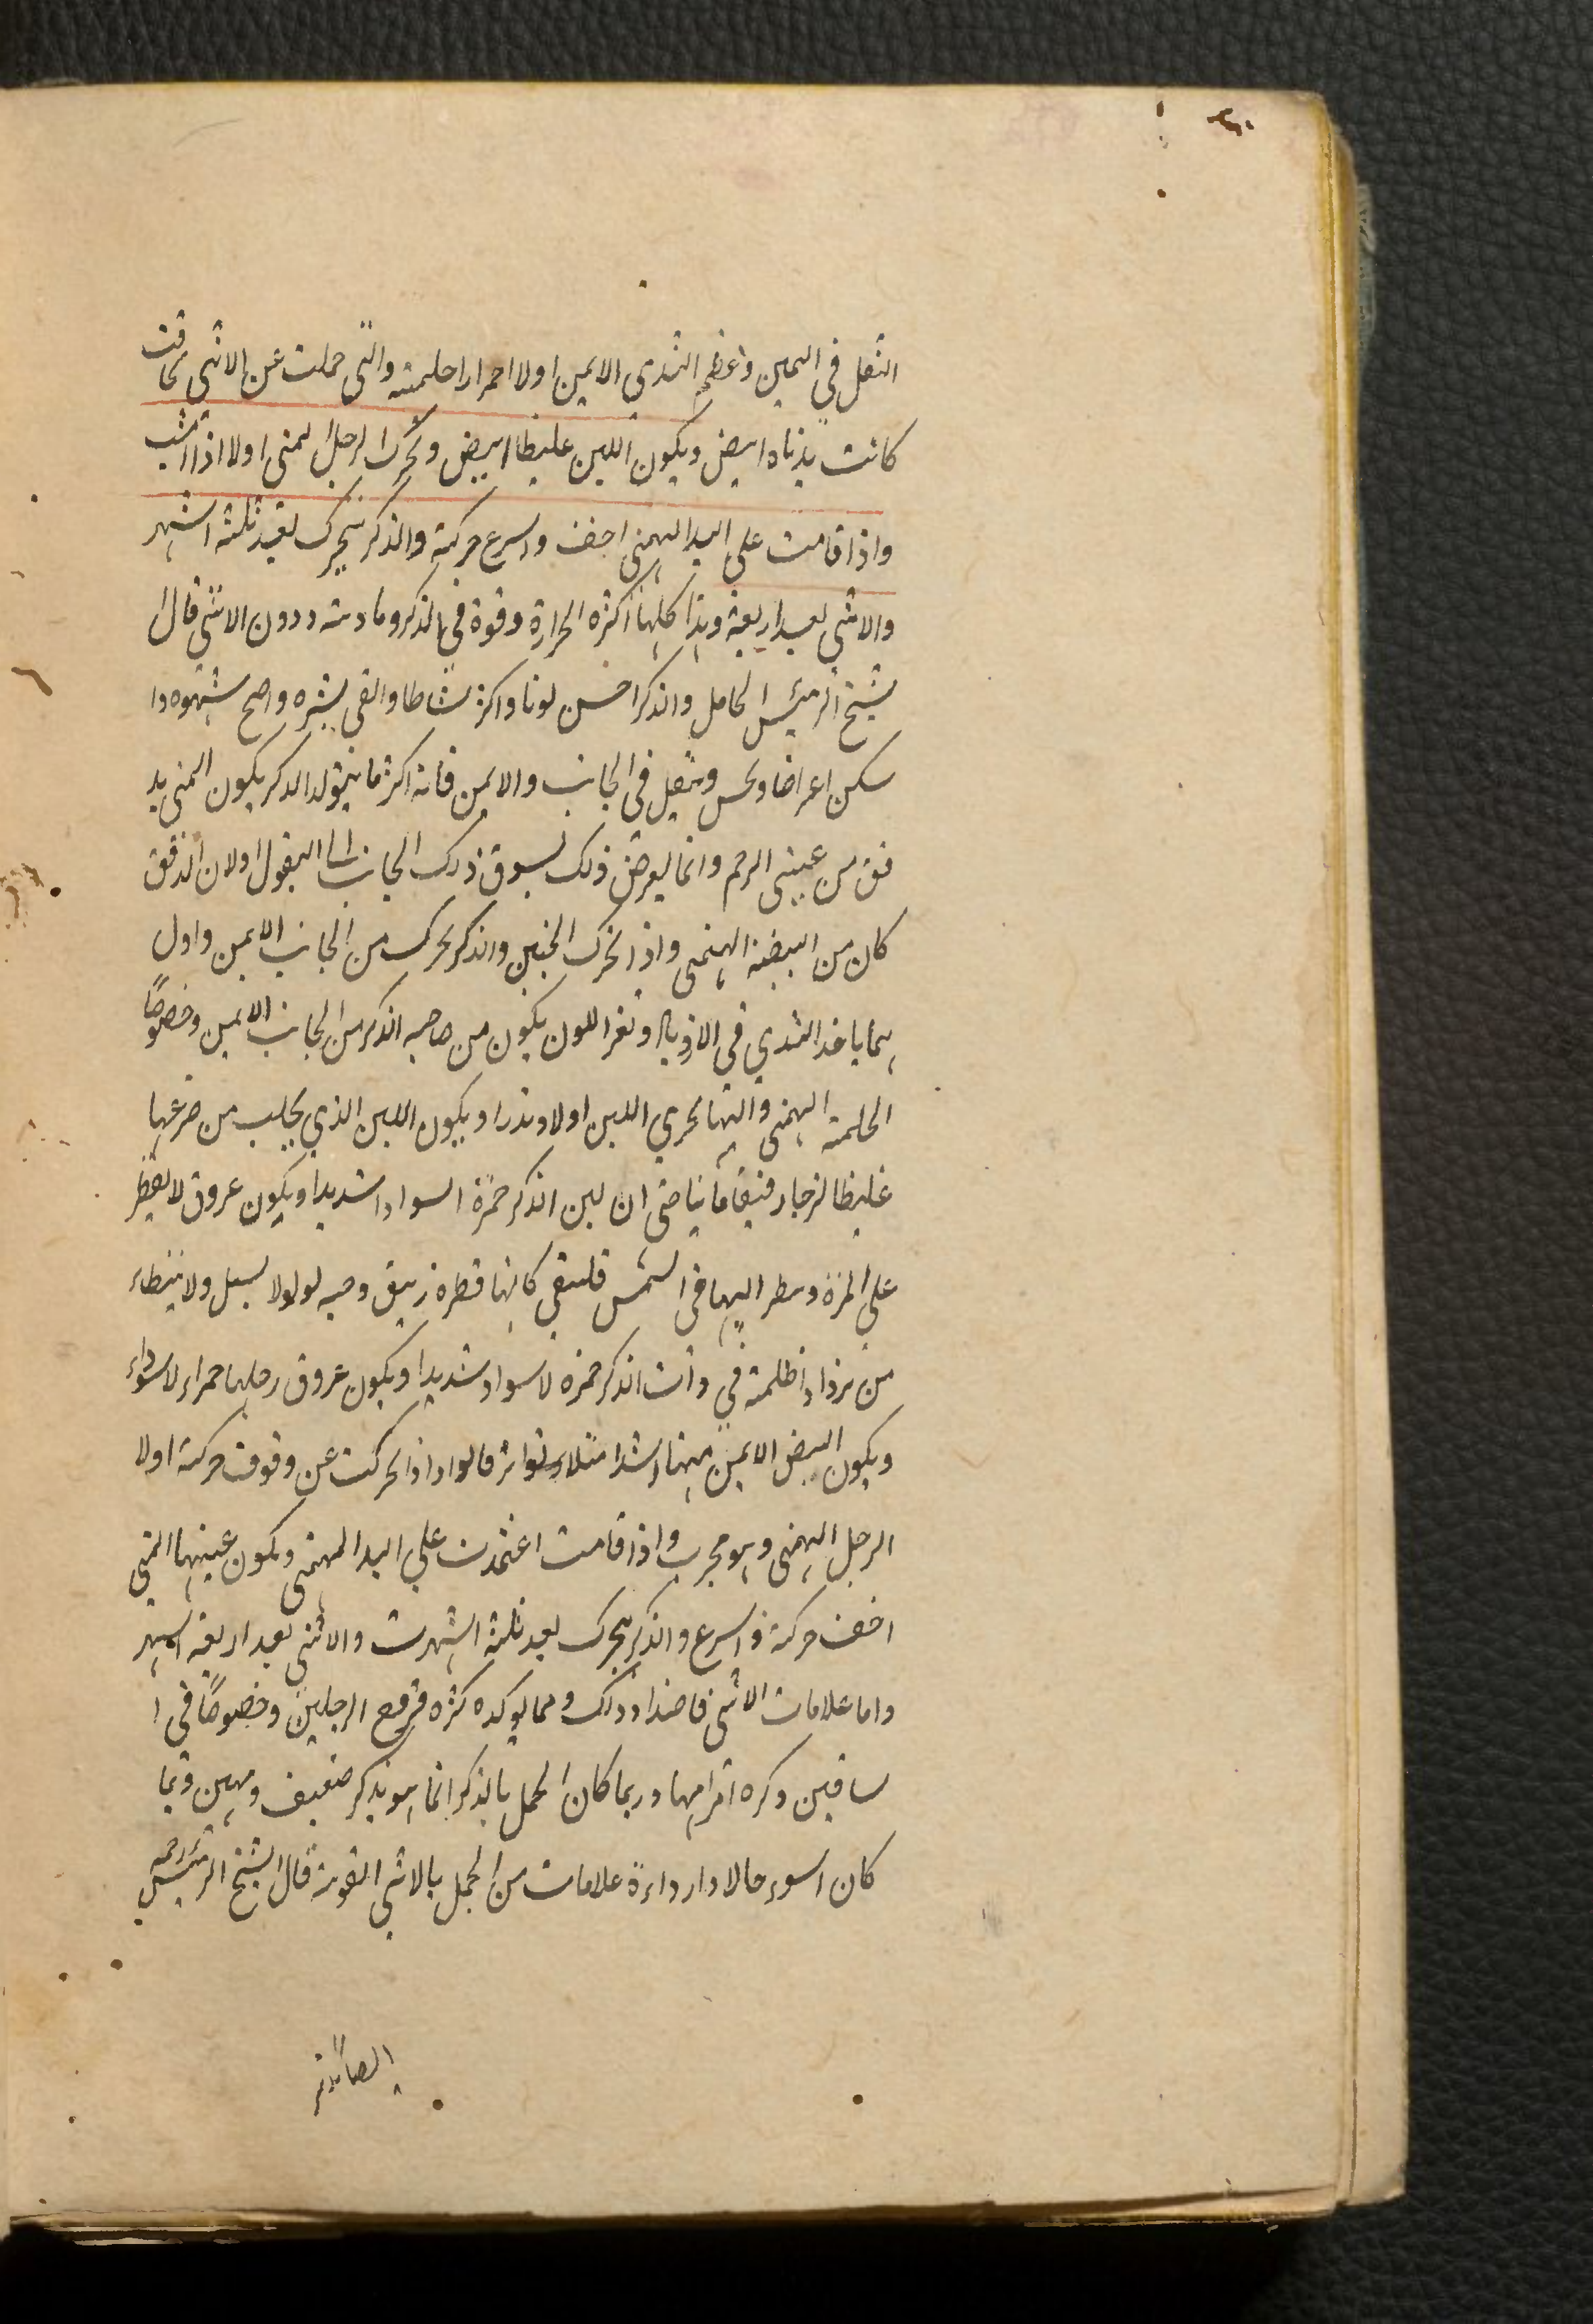 الثقل في اليمين وعظم الثدي الايمن اولا احمرارا حلمته والتي حملت عن الانثى كانت
كانت يذناه ابيض ويكون اللبن غليظا ابيض وتحرك الرجل اليمنى اولا اذا مشت
واذا قامت على اليد اليمنى اخف واسرع حركته والذكر يتحرك بعد ثلثة اشهر
والانثى بعد اربعة وهذا كلها اكثره الحرارة وقوة في الذكر ومادته ودون الانثى قال
شيخ الرئيس الحامل والذكر احسن لونا واكثر نشاطا وانقى بشره واصح شهوه وا
سكن اعراضا وتحس وثقل في الجانب والايمن فانه اكثر ما يتولد الذكر يكون المنى يد
فق من عيني الرحم وانما يعرض ذلك لسوق ذلك الجانب الى القول اولان الدفق
كان من البيضة اليمنى واذا تحرك الجنين والذكر تحرك من الجانب الايمن واول
ما ياخذ الثدي في الازدياد وتغير اللون يكون من صاحبه الذكر من الجانب الايمن وخصوصًا
الحلمة اليمنى واليها تجري اللبن اولا وتدر او يكون اللبن الذي يحلب من ضرعها
غليظا لزجا رقيقا مانيا حتى ان لبن الذكر حمزة السوادا شديدا ويكون عروق لا يقطر
على المرة وينظر اليها في الشمس فلتبقى كانها قطره زيبق وحبه لولو لا يسيل ولا يتطاء
من يزداد اظلمته في ذات الذكر حمزه لا سواد شديدا ويكون عروق رجلها حمراء لا سوداء
ويكون النبض الايمن منها اشد امتلاء وتواتر قالوا واذا تحركت عن وقوف حركة اولا
الرجل اليمنى وهو مجرب واذا قامت اعتمدت على اليد اليمنى ويكون عينها اليمنى
اخف حركة واسرع والذكر يتحرك بعد ثلثة اشهرت والانثى بعد اربعة اشهر
واما علامات الانثى فاضداد ذلك ومما يوكده كثره قروح الرجلين وخصوصًا في ا
ساقين وكره اقرامها وربما كان الحمل بالذكر انما هو بذكر ضعيف ومهين وبما
كان اسوء حالا وارداءة علامات من الحمل بالانثى القوية قال الشيخ الرئيس رحمه